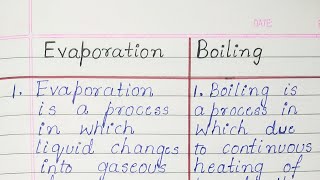 DATE
Evaporation Boiling
1. Evaporation
is a process
in which
liquid changes
into gaseous
1. Boiling is
a process in
which due
to continuous
heating of